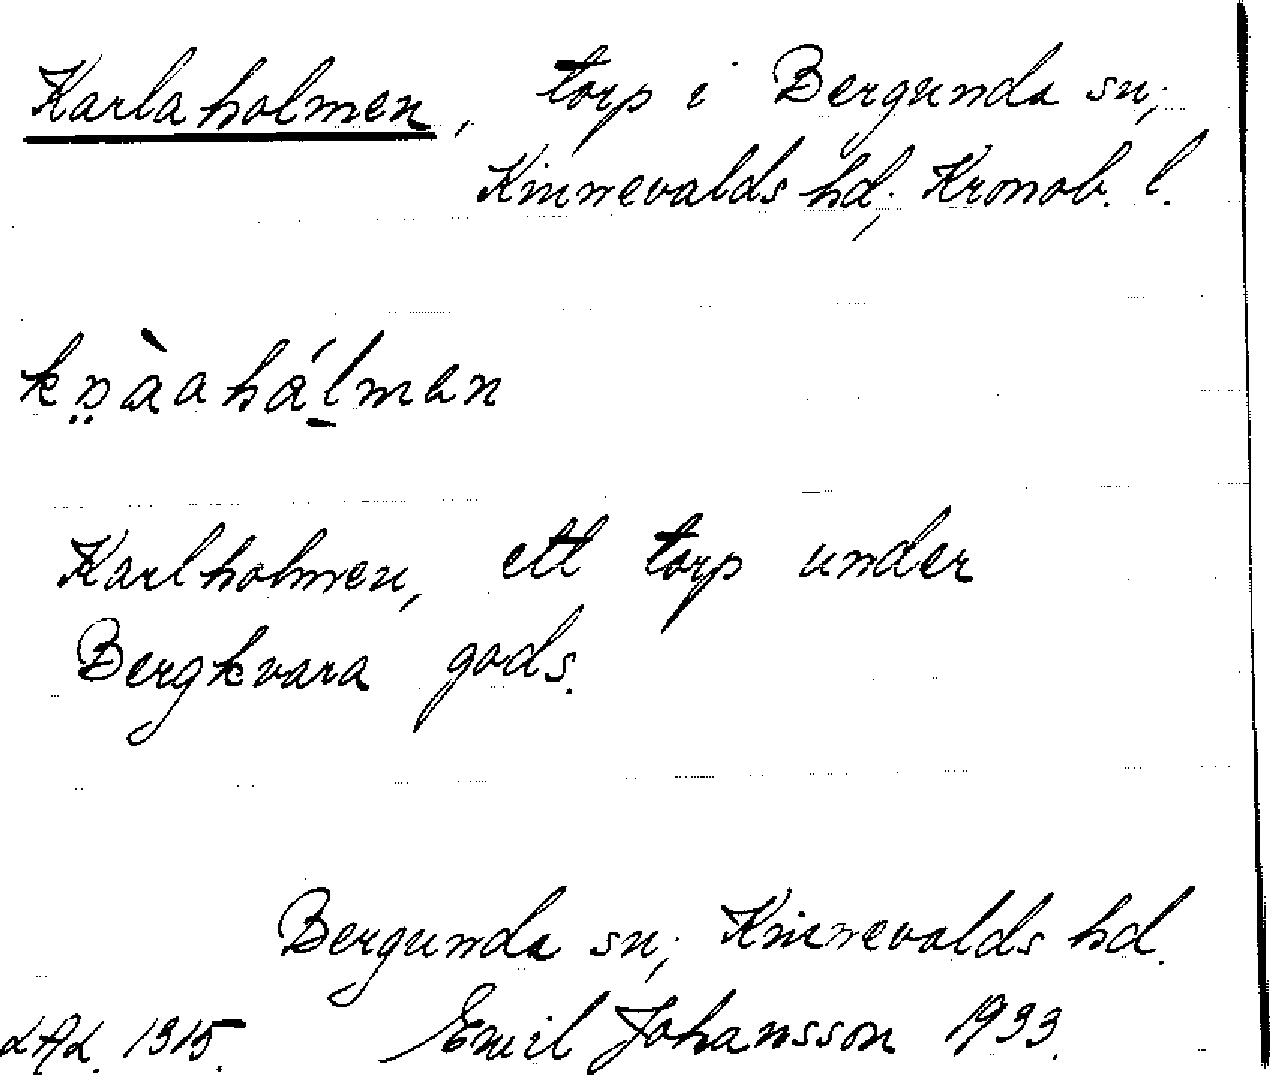 Karlaholmen, torp i Bergunda sn,
Kinnevalds hd, Kronob. l.
Karlholmen, ett torp under
Bergkvara gods.
Bergunda sn, Kinnevalds hd.
LAL. 1315. Emil Johansson 1933.